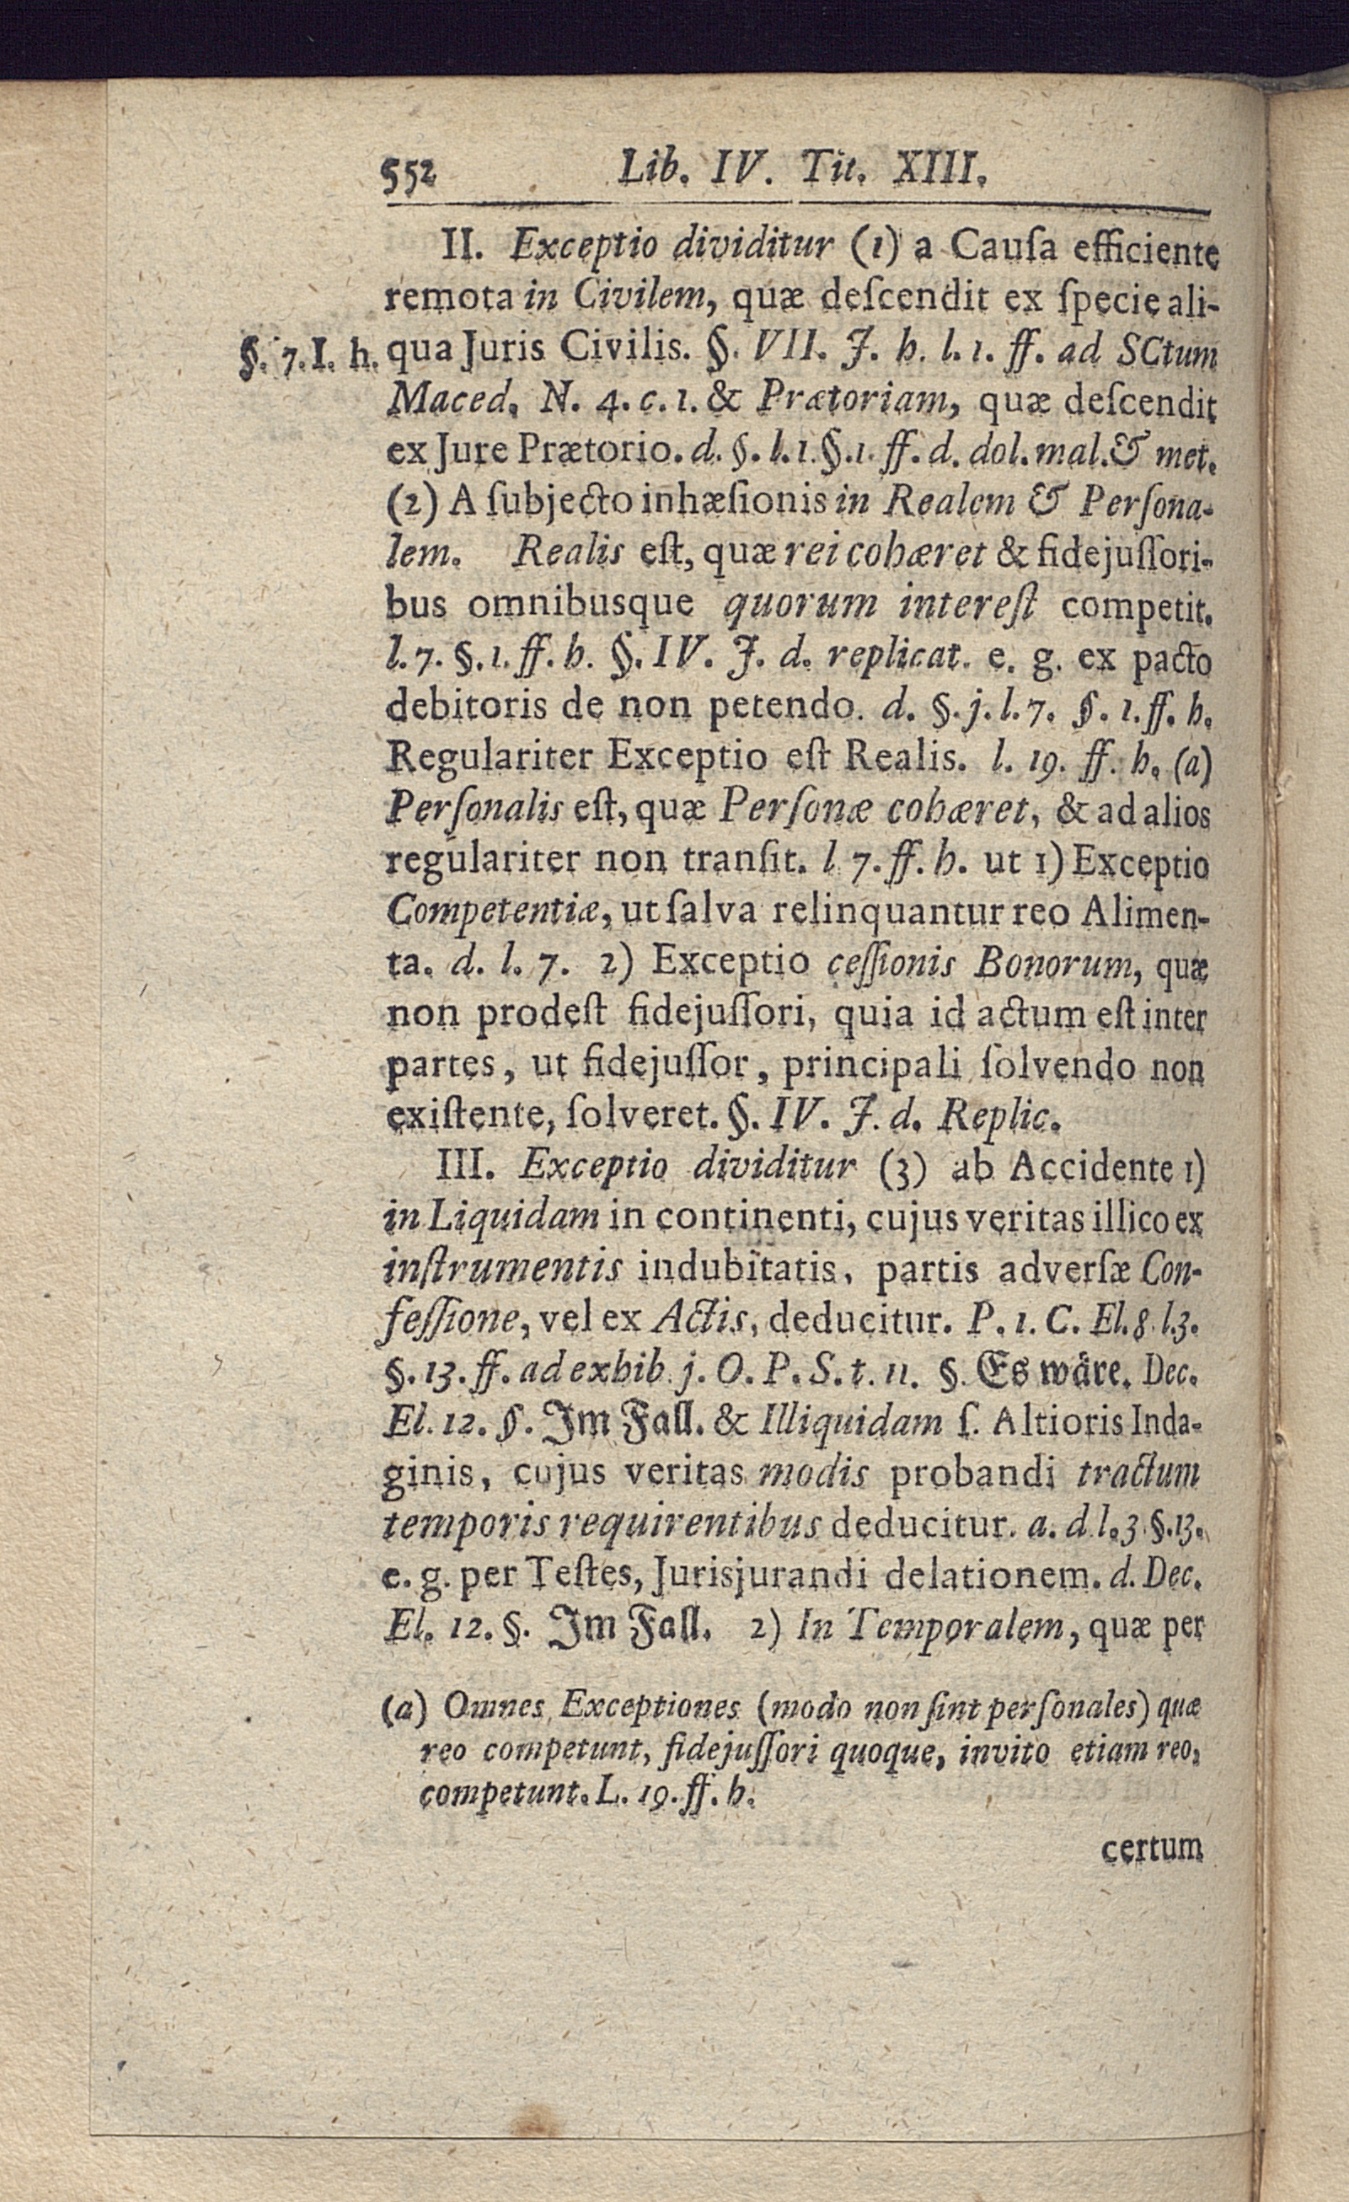 552 Lib. IV. Tit. XIII.
II. Exceptio dividitur (1) a Cauſa efficiente
remota in Civilem, quæ deſcendit ex ſpecie ali-
§. 7. I. h.
qua Juris Civilis. §. VII. J. h. l. 1. ff. ad SCtum
Maced. N. 4. c. 1. & Prætoriam, quæ deſcendit
ex Jure Prætorio. d. §. l. 1. §. 1. ff. d. dol. mal. & met.
(2) A ſubjecto inhæſionis in Realem & Perſona-
lem. Realis eſt, quæ rei cohæret & fidejuſſori-
bus omnibusque quorum intereſt competit.
l. 7. §. 1. ff. h. §. IV. J. d. replicat. e. g. ex pacto
debitoris de non petendo. d. §. j. l. 7. §. 1. ff. h.
Regulariter Exceptio eſt Realis. l. 19. ff. h. (a)
Perſonalis eſt, quæ Perſonæ cohæret, & ad alios
regulariter non tranſit. l 7. ff. h. ut 1) Exceptio
Competentiæ, ut ſalva relinquantur reo Alimen-
ta. d. l. 7. 2) Exceptio ceſſionis Bonorum, quæ
non prodeſt fidejuſſori, quia id actum eſt inter
partes, ut fidejuſſor, principali ſolvendo non
exiſtente, ſolveret. §. IV. J. d. Replic.
III. Exceptio dividitur (3) ab Accidente 1)
in Liquidam in continenti, cujus veritas illico ex
inſtrumentis indubitatis, partis adverſæ Con-
feſſione, vel ex Actis, deducitur. P. 1. C. El. 8. l. 3.
§. 13. ff. ad exhib. j. O. P. S. t. 11. §. Es wäre. Dec.
El. 12. §. Im Fall. & Illiquidam ſ. Altioris Inda-
ginis, cujus veritas modis probandi tractum
temporis requirentibus deducitur. a. d. l. 3. §. 13.
e. g. per Teſtes, Jurisjurandi delationem. d. Dec.
El. 12. §. Im Fall. 2) In Temporalem, quæ per
(a) Omnes Exceptiones (modo non ſint perſonales) quæ
reo competunt, fidejuſſori quoque, invito etiam reo,
competunt. L. 19. ff. h.
certum